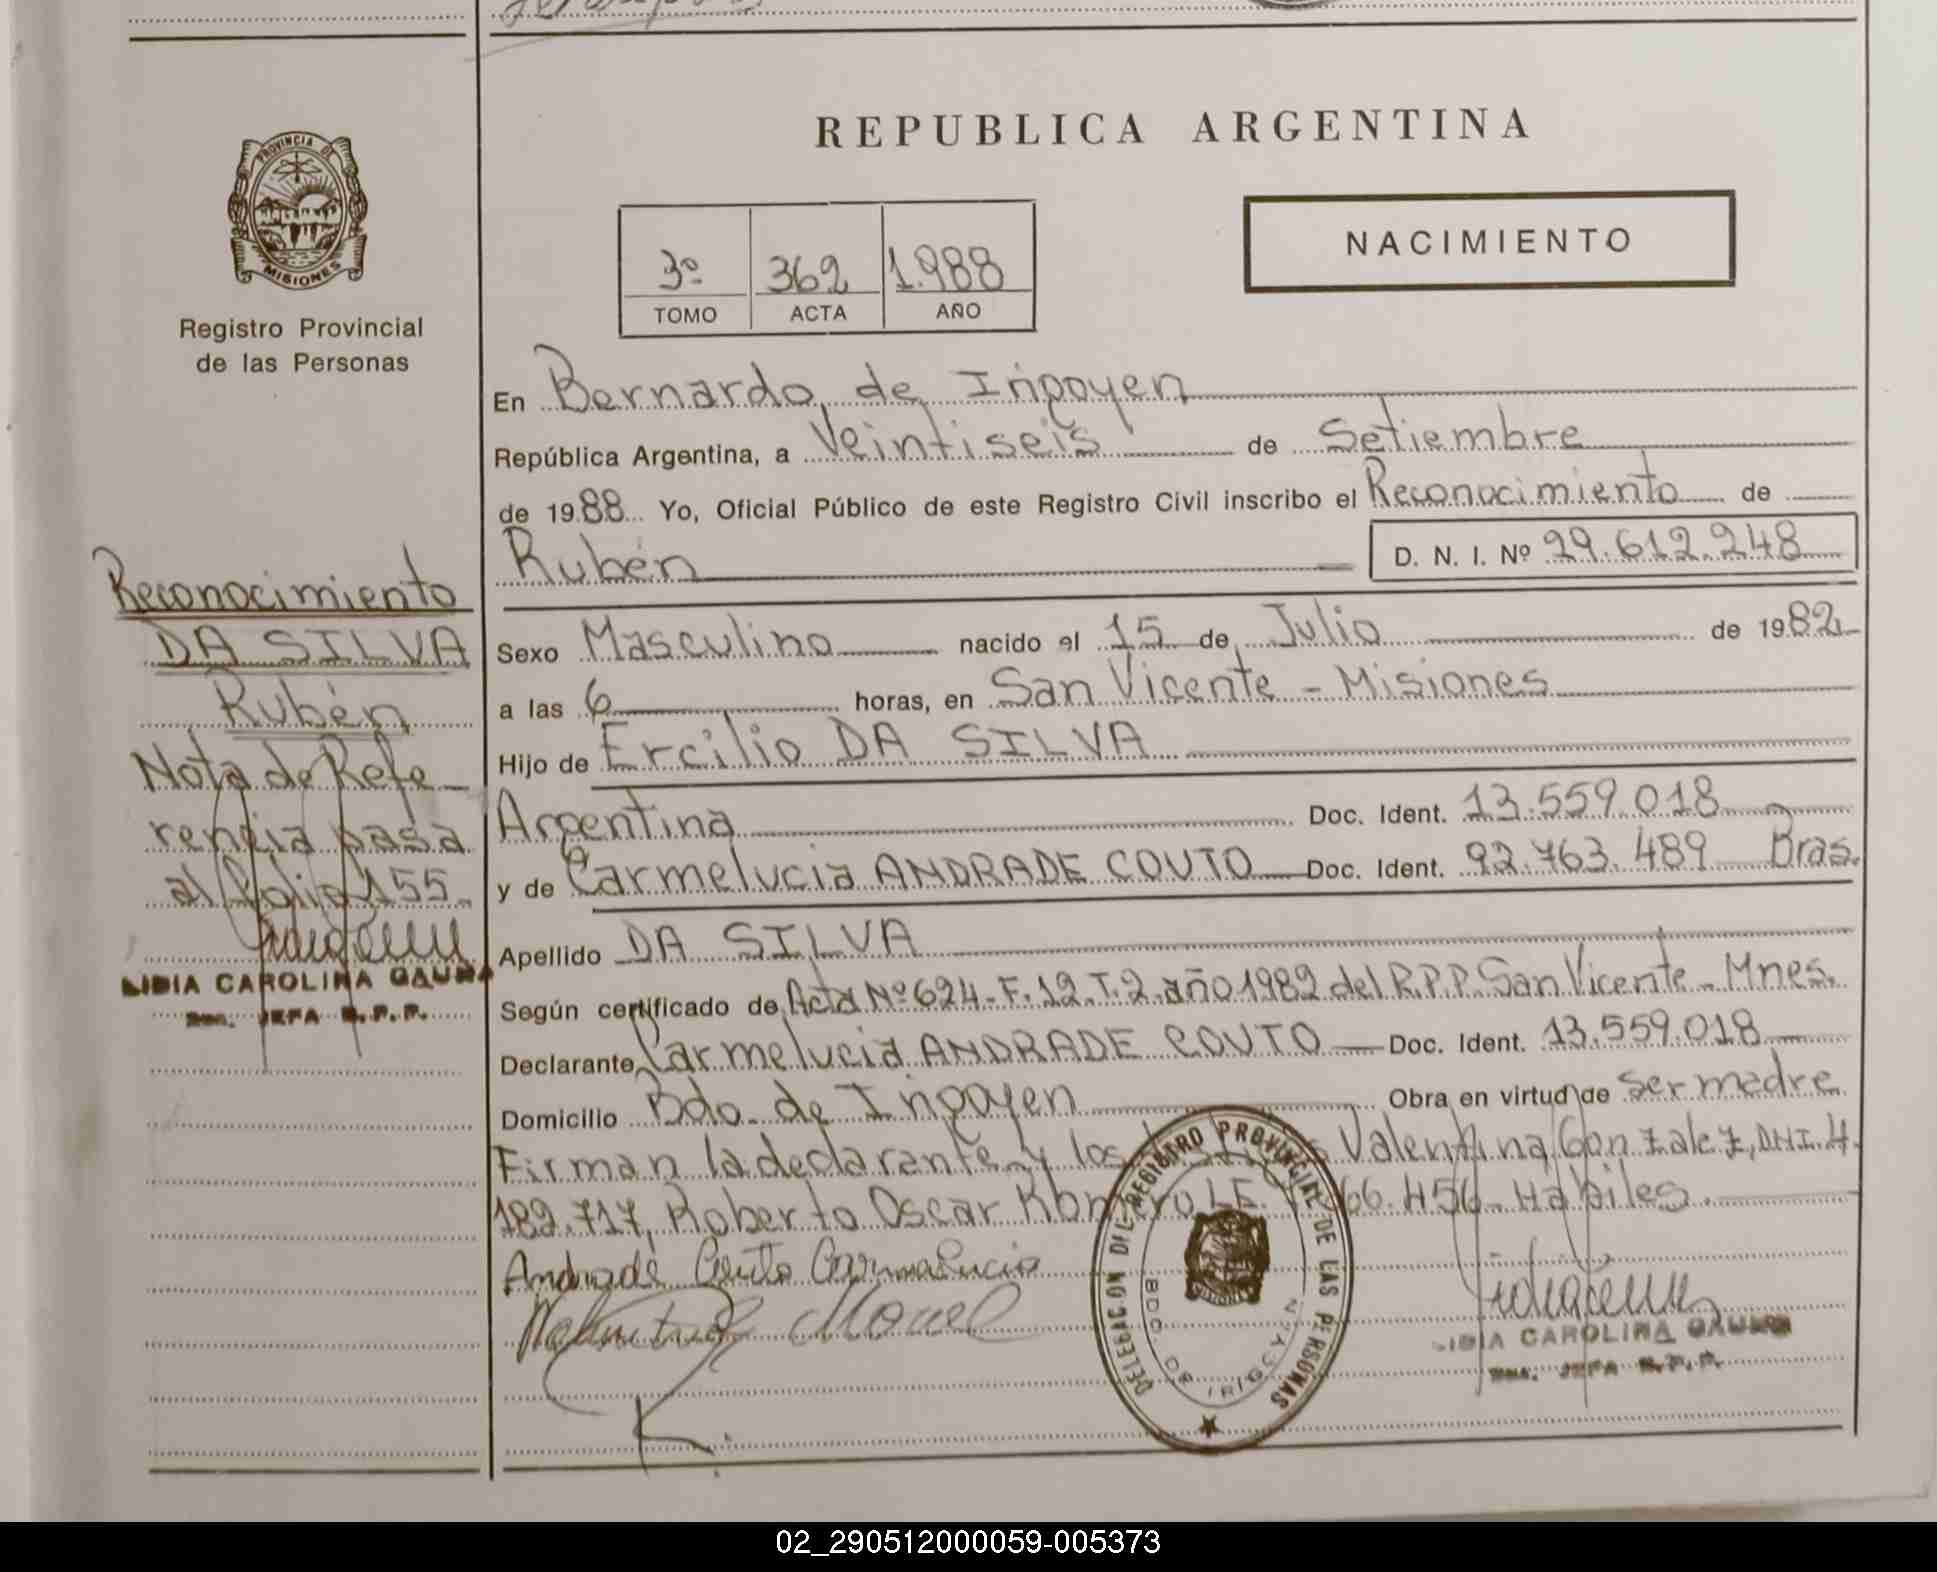 REPUBLICA ARGENTINA
PROVINCIA DE
MISIONES
Registro Provincial
de las Personas
3º 362 1.988
TOMO ACTA AÑO
NACIMIENTO
En Bernardo de Irigoyen
República Argentina, a Veintiseis de Setiembre
de 1988 Yo, Oficial Público de este Registro Civil inscribo el Reconocimiento de
Rubén D. N. I. Nº 29.612.248
Sexo Masculino nacido el 15 de Julio de 1982
a las 6 horas, en San Vicente - Misiones
Hijo de Ercilio DA SILVA
Argentina Doc. Ident. 13.559.018
y de Carmelucia ANDRADE COUTO Doc. Ident. 92.763.489 Bras.
Apellido DA SILVA
Según certificado de Acta Nº 624-F.12.T.2.año 1982 del R.P.P. San Vicente - Mnes.
Declarante Carmelucia ANDRADE COUTO Doc. Ident. 13.559.018
Domicilio Bdo. de Irigoyen Obra en virtud de ser madre
Firman la declarante y los Valentina Gonzalez, DNI. 4.
182.717, Roberto Oscar Romero LE. 66.456. Habiles
Andrade Couto Carmelucia
Reconocimiento
DA SILVA
Rubén
Nota de Refe-
rencia pasa
al folio 155.
LIDIA CAROLINA
JEFA R.P.P.
DELEGACION DEL REGISTRO PROVINCIAL DE LAS PERSONAS
BDO DE IRIGOYEN
LIDIA CAROLINA
JEFA R.P.P.
02_290512000059-005373